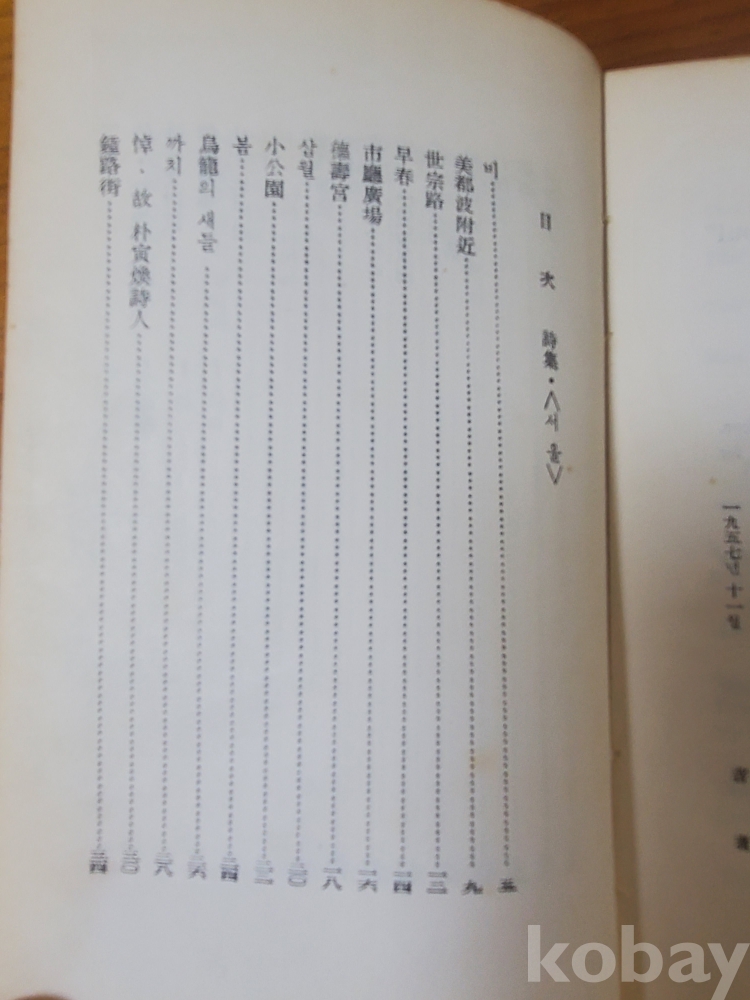 一九五七년 十一월
目次 詩集・<서울>
비 五
美都波附近 九
世宗路 一二
早春 一四
市廳廣場 一六
德壽宮 一八
삼월 二〇
小公園 二二
봄 二四
烏龍의 새들 二六
까치 二八
悼・故 朴寅煥詩人 三〇
鐘路街 三四
kobay